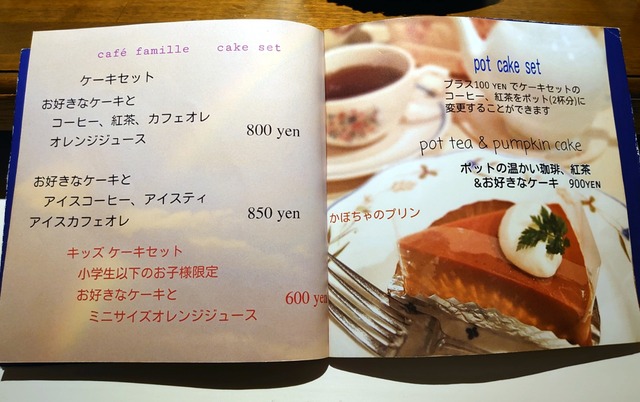 café famille cake set
ケーキセット
お好きなケーキと
コーヒー、紅茶、カフェオレ
オレンジジュース
800 yen
お好きなケーキと
アイスコーヒー、アイスティ
アイスカフェオレ
850 yen
キッズ ケーキセット
小学生以下のお子様限定
お好きなケーキと
ミニサイズオレンジジュース
600 yen
pot cake set
プラス100 YEN でケーキセットの
コーヒー、紅茶をポット(2杯分)に
変更することができます
pot tea & pumpkin cake
ポットの温かい珈琲、紅茶
&お好きなケーキ 900YEN
かぼちゃのプリン